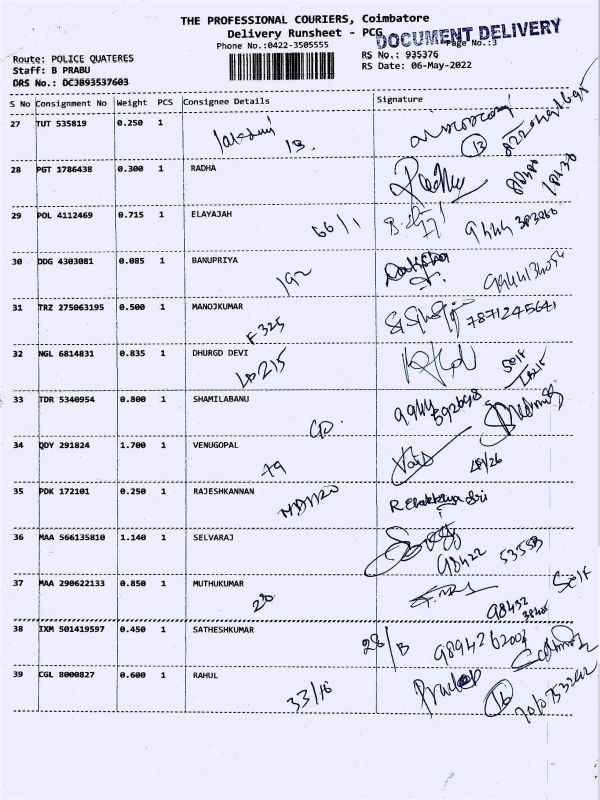 THE PROFESSIONAL COURIERS, Coimbatore
Delivery Runsheet - PCG
DOCUMENT DELIVERY
Phone No.:0422-3505555
Page No.:3
Route: POLICE QUATERES
RS No.: 935376
Staff: B PRABU
RS Date: 06-May-2022
DRS No.: DCJ893537603
S No Consignment No Weight PCS Consignee Details Signature
27 TUT 535819 0.250 1 lakshmi 13. 13
28 PGT 1786438 0.300 1 RADHA Radha
29 POL 4112469 0.715 1 ELAYAJAH 66/1
30 DDG 4303081 0.085 1 BANUPRIYA 192
31 TRZ 275063195 0.500 1 MANOJKUMAR F 325 7871245641
32 NGL 6814831 0.835 1 DHURGD DEVI LD215 Self
33 TDR 5340954 0.800 1 SHAMILABANU 9944 592698
34 QDY 291824 1.700 1 VENUGOPAL 79
35 PDK 172101 0.250 1 RAJESHKANNAN
36 MAA 566135810 1.140 1 SELVARAJ 98422 53553
37 MAA 290622133 0.850 1 MUTHUKUMAR 230 Self
98432
38 IXM 501419597 0.450 1 SATHESHKUMAR 28/B
39 CGL 8000827 0.600 1 RAHUL 33/16 Pradeep 16